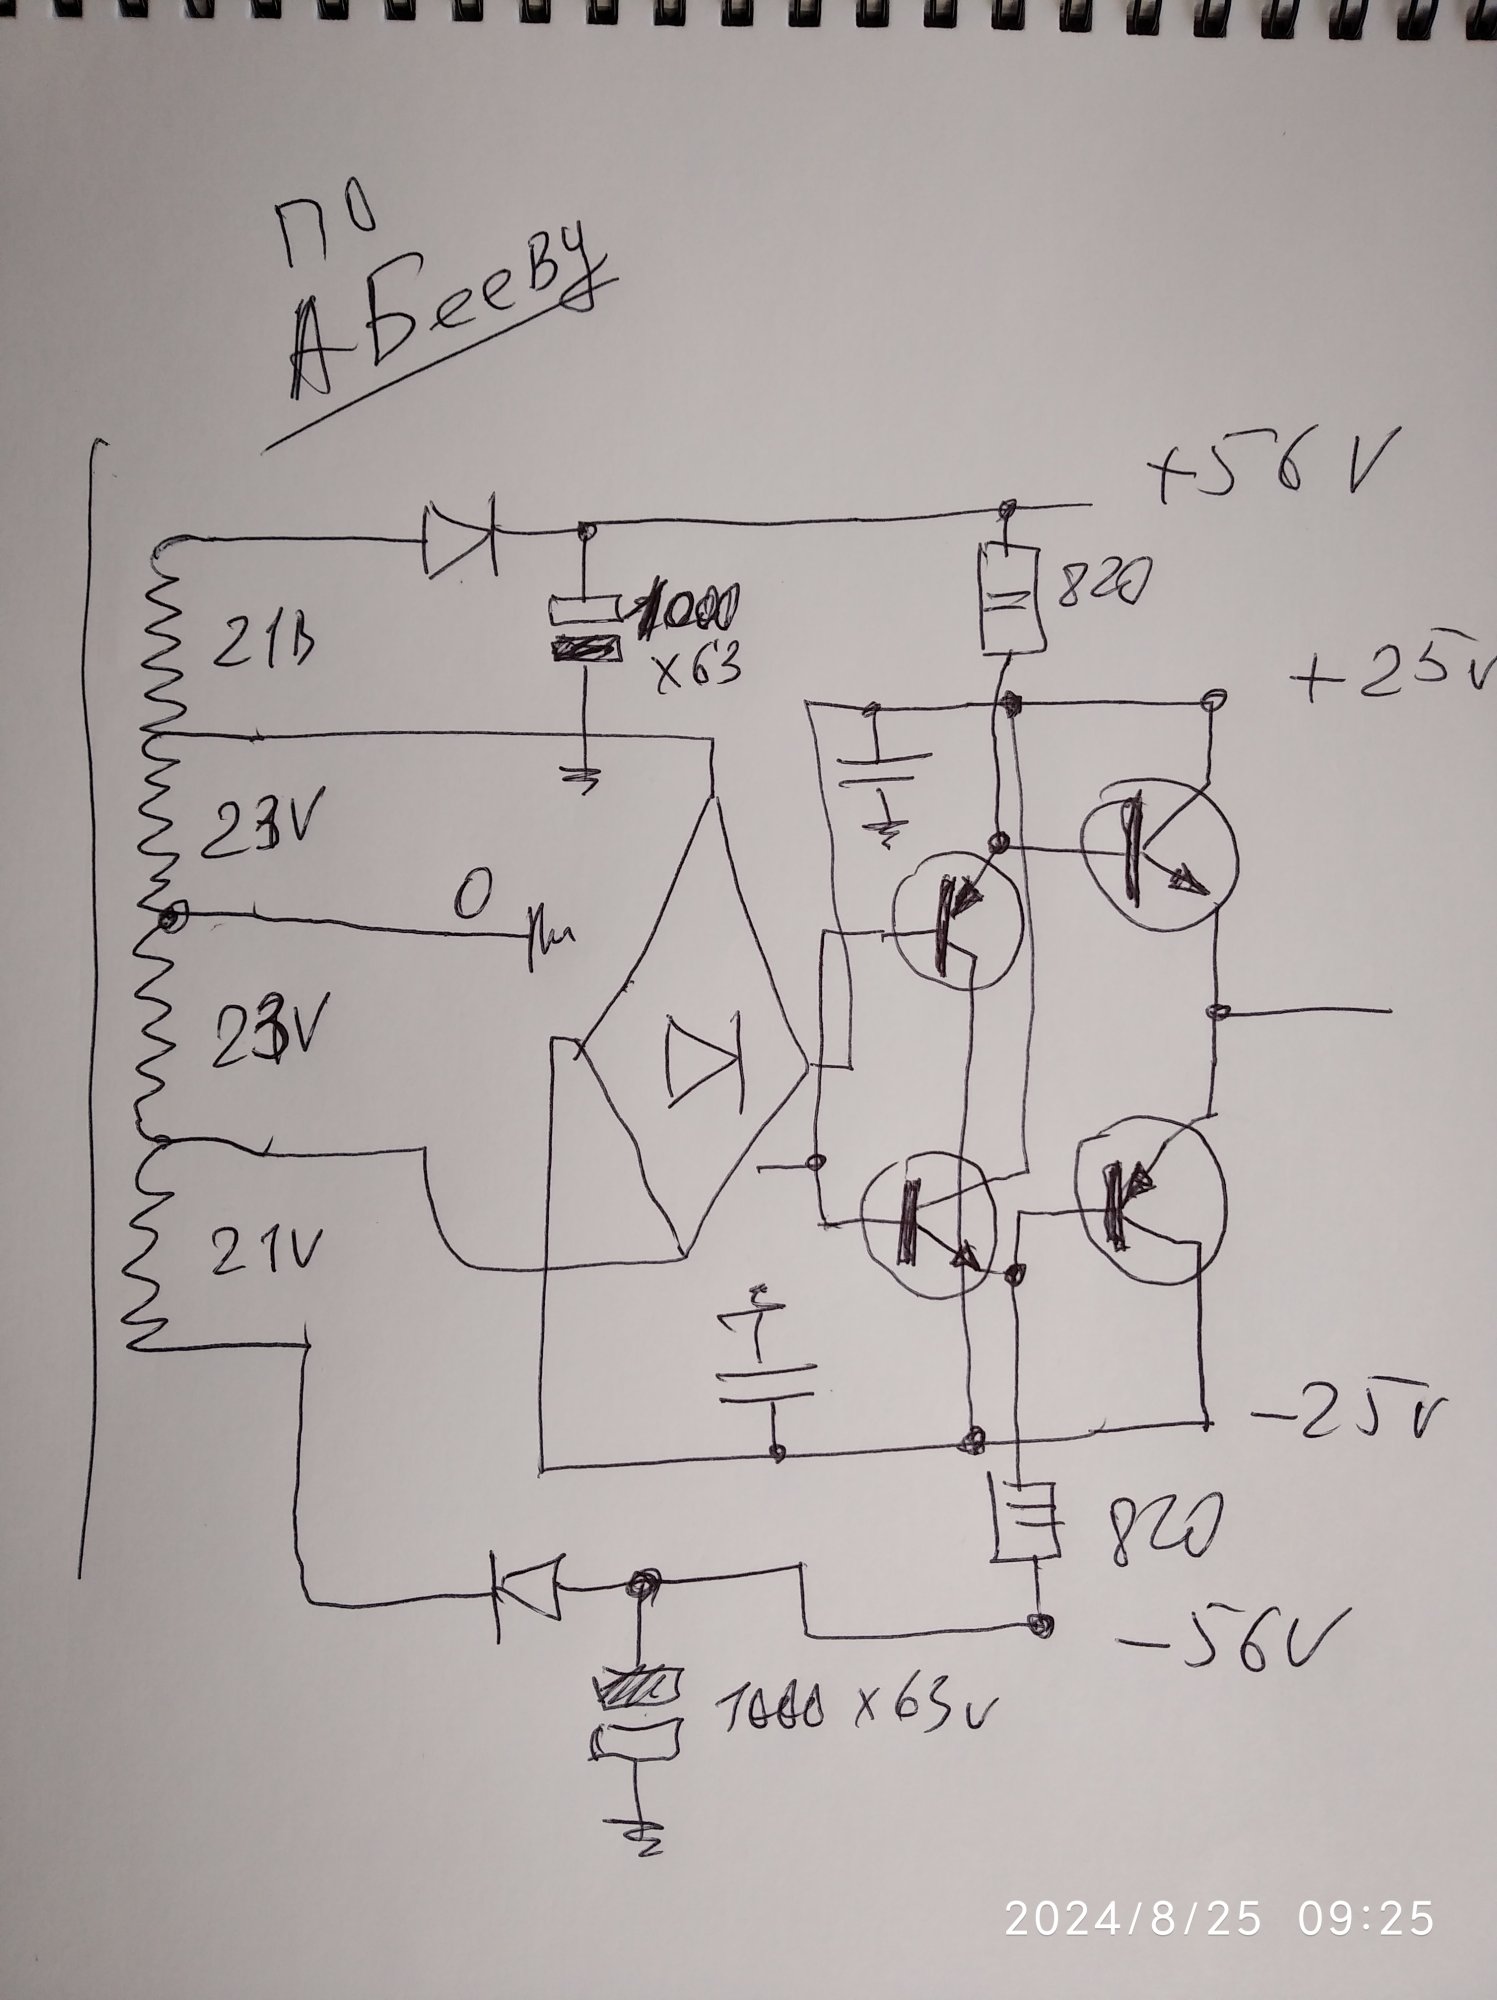 по
АБееву
+56V
820
21В
1000
x63
+25v
23V
0
23V
21V
-25v
820
-56V
1000 x63v
2024/8/25 09:25